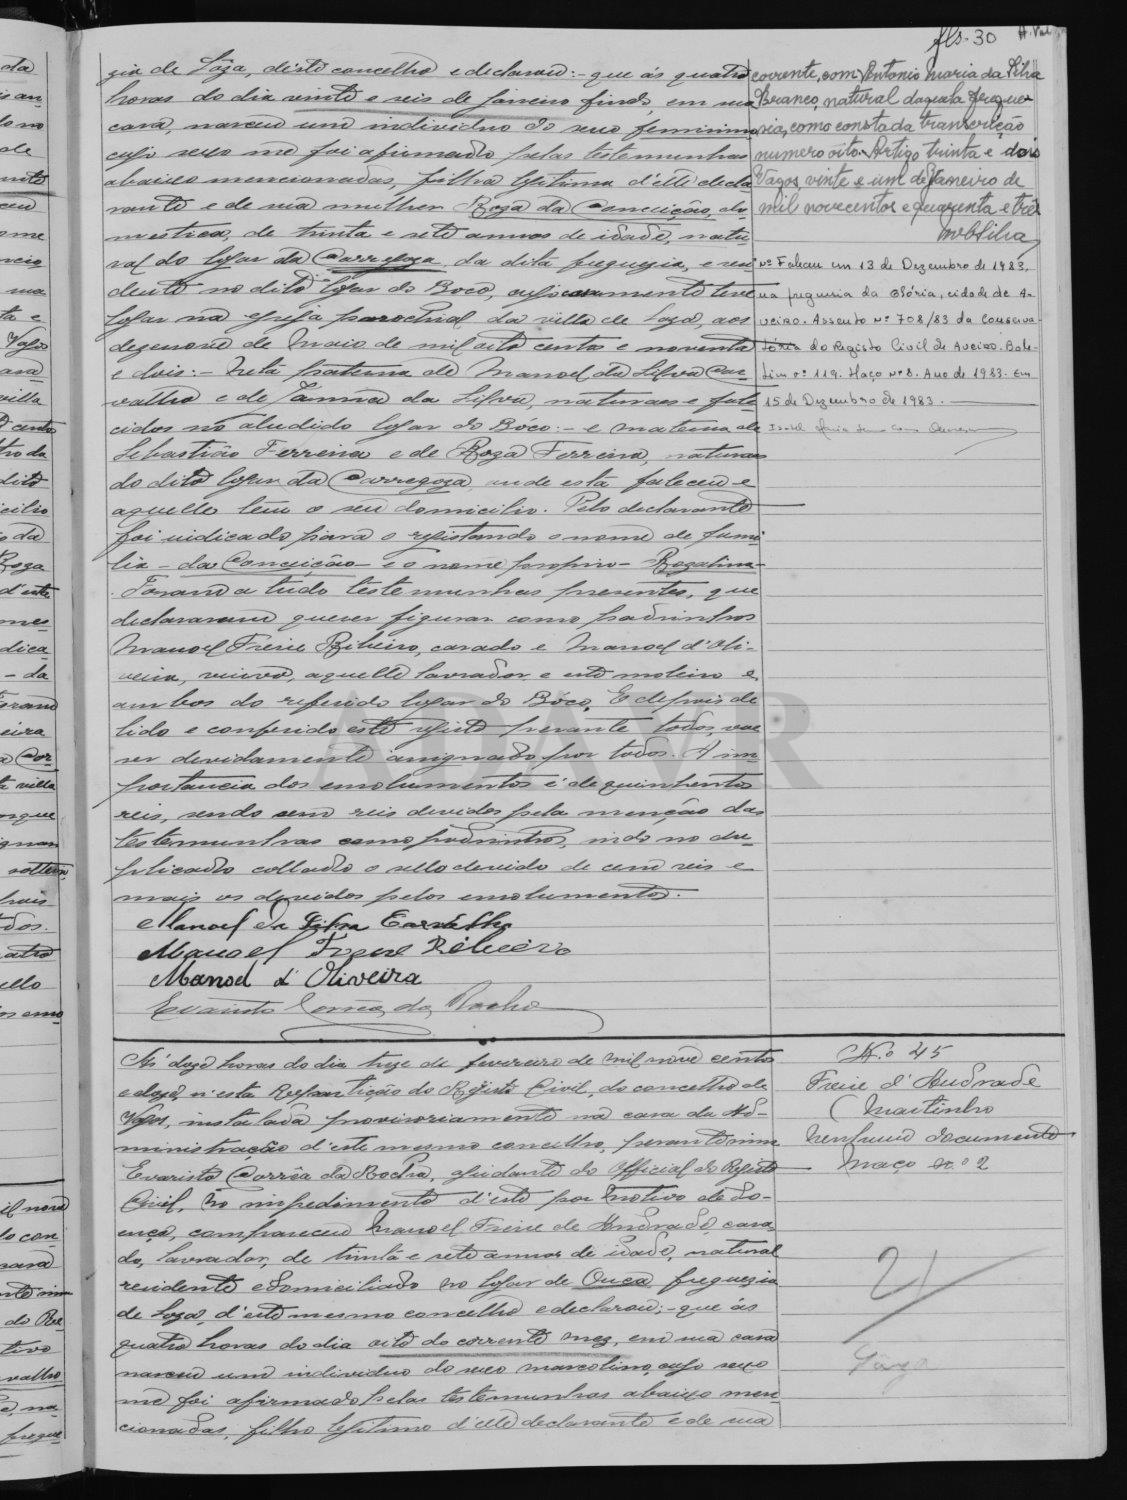 fls. 30
gia de Sôza, d'este concelho e declarou:- que ás quatro
horas do dia vinte e seis de Janeiro findo, em sua
casa, nasceu um individuo do sexo feminino,
cujo sexo me foi afirmado pelas testemunhas
abaixo mencionadas, filha legitima d'elle decla-
rante e de sua mulher Roza da Conceição, do-
mestica, de trinta e sete annos de idade, natu
ral do logar da Carregoza, da dita freguezia, e resi
dente no dito logar do Boco, cujo casamento teve
logar na egreja parochial da villa de Soza, aos
dezenove de Maio de mil oito centos e noventa
e dois:- Neta paterna de Manoel da Silva Car-
valho e de Joanna da Silva, naturaes e fale-
cidos no aludido logar do Bôco:- e materna de
Sebastião Ferreira e de Roza Ferreira, naturaes
do dito logar da Carregoza, onde esta faleceu e
aquelle tem o seu domicilio. Pelo declarante
foi indicado para o registando o nome de fami
lia - da Conceição - e o nome proprio - Rozalina-
. Foram a tudo testemunhas presentes, que
declararam querer figurar como padrinhos
Manoel Freire Ribeiro, casado e Manoel d'Oli-
veira, viuvo, aquelle lavrador e este moleiro e
ambos do referido logar do Bôco. E depois de
lido e conferido este registo perante todos, vae
ser devidamente assignado por todos. A im-
portancia dos emolumentos é de quinhentos
reis, sendo cem reis devidos pela menção das
testemunhas como padrinhos, indo no du-
plicado collado o sello devido de cem reis e
mais os devidos pelos emolumentos.
Manoel da Silva Carvalho
Manoel Freire Ribeiro
Manoel d'Oliveira
Evaristo Corrêa da Rocha
corrente, com Antonio Maria da Silva
Branco, natural daquela fregue-
sia, como consta da transcrição
numero oito. Artigo trinta e dois
Vagos, vinte e um de Janeiro de
mil novecentos e quarenta e três
Nº Faleceu em 13 de Dezembro de 1983,
na freguesia da Glória, cidade de A-
veiro. Assento Nº 708/83 da Conserva-
tória do Registo Civil de Aveiro. Bole-
tim nº 119. Maço Nº 8. Ano de 1983. Em
15 de Dezembro de 1983.
Ás doze horas do dia treze de fevereiro de mil nove centos
e doze, n'esta Repartição do Registo Civil, do concelho de
Vagos, installada provisoriamente na casa da Ad-
ministração d'este mesmo concelho, perante mim
Evaristo Corrêa da Rocha, ajudante do Official do Registo
Civil, no impedimento d'este por motivo de do-
ença, compareceu Manoel Freire de Andrade, casa-
do, lavrador, de trinta e sete annos de idade, natural
residente e domiciliado no logar de Ouca, freguezia
de Soza, d'este mesmo concelho e declarou:- que ás
quatro horas do dia oito do corrente mez, em sua casa
nasceu um individuo do sexo masculino, cujo sexo
me foi afirmado pelas testemunhas abaixo men-
cionadas, filho legitimo d'elle declarante e de sua
N.º 45
Freire d'Andrade
(Martinho
Nenhum documento
Maço n.º 2
Sôza
ADAVR